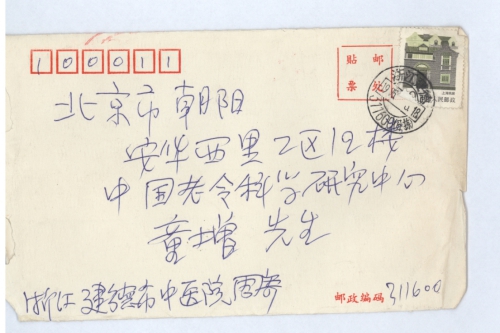 100011
贴 邮
票 处
上海民居
中国人民邮政
北京市朝阳
安华西里2区12楼
中国老令科学研究中心
童增 先生
浙江建德市中医院周
邮政编码 311600